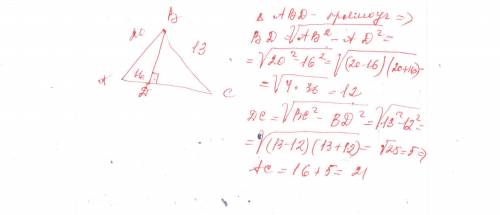 B
20
13
A
16
D
C
в ABD - прямоуг =>
BD = √AB² - AD² =
= √20² 16² = √(20-16)(20+16) -
= √4·36 = 12
DC = √BC² - BD² = √13² - 12² =
= √(13-12)(13+12) = √25 = 5 =>
AC = 16 + 5 = 21